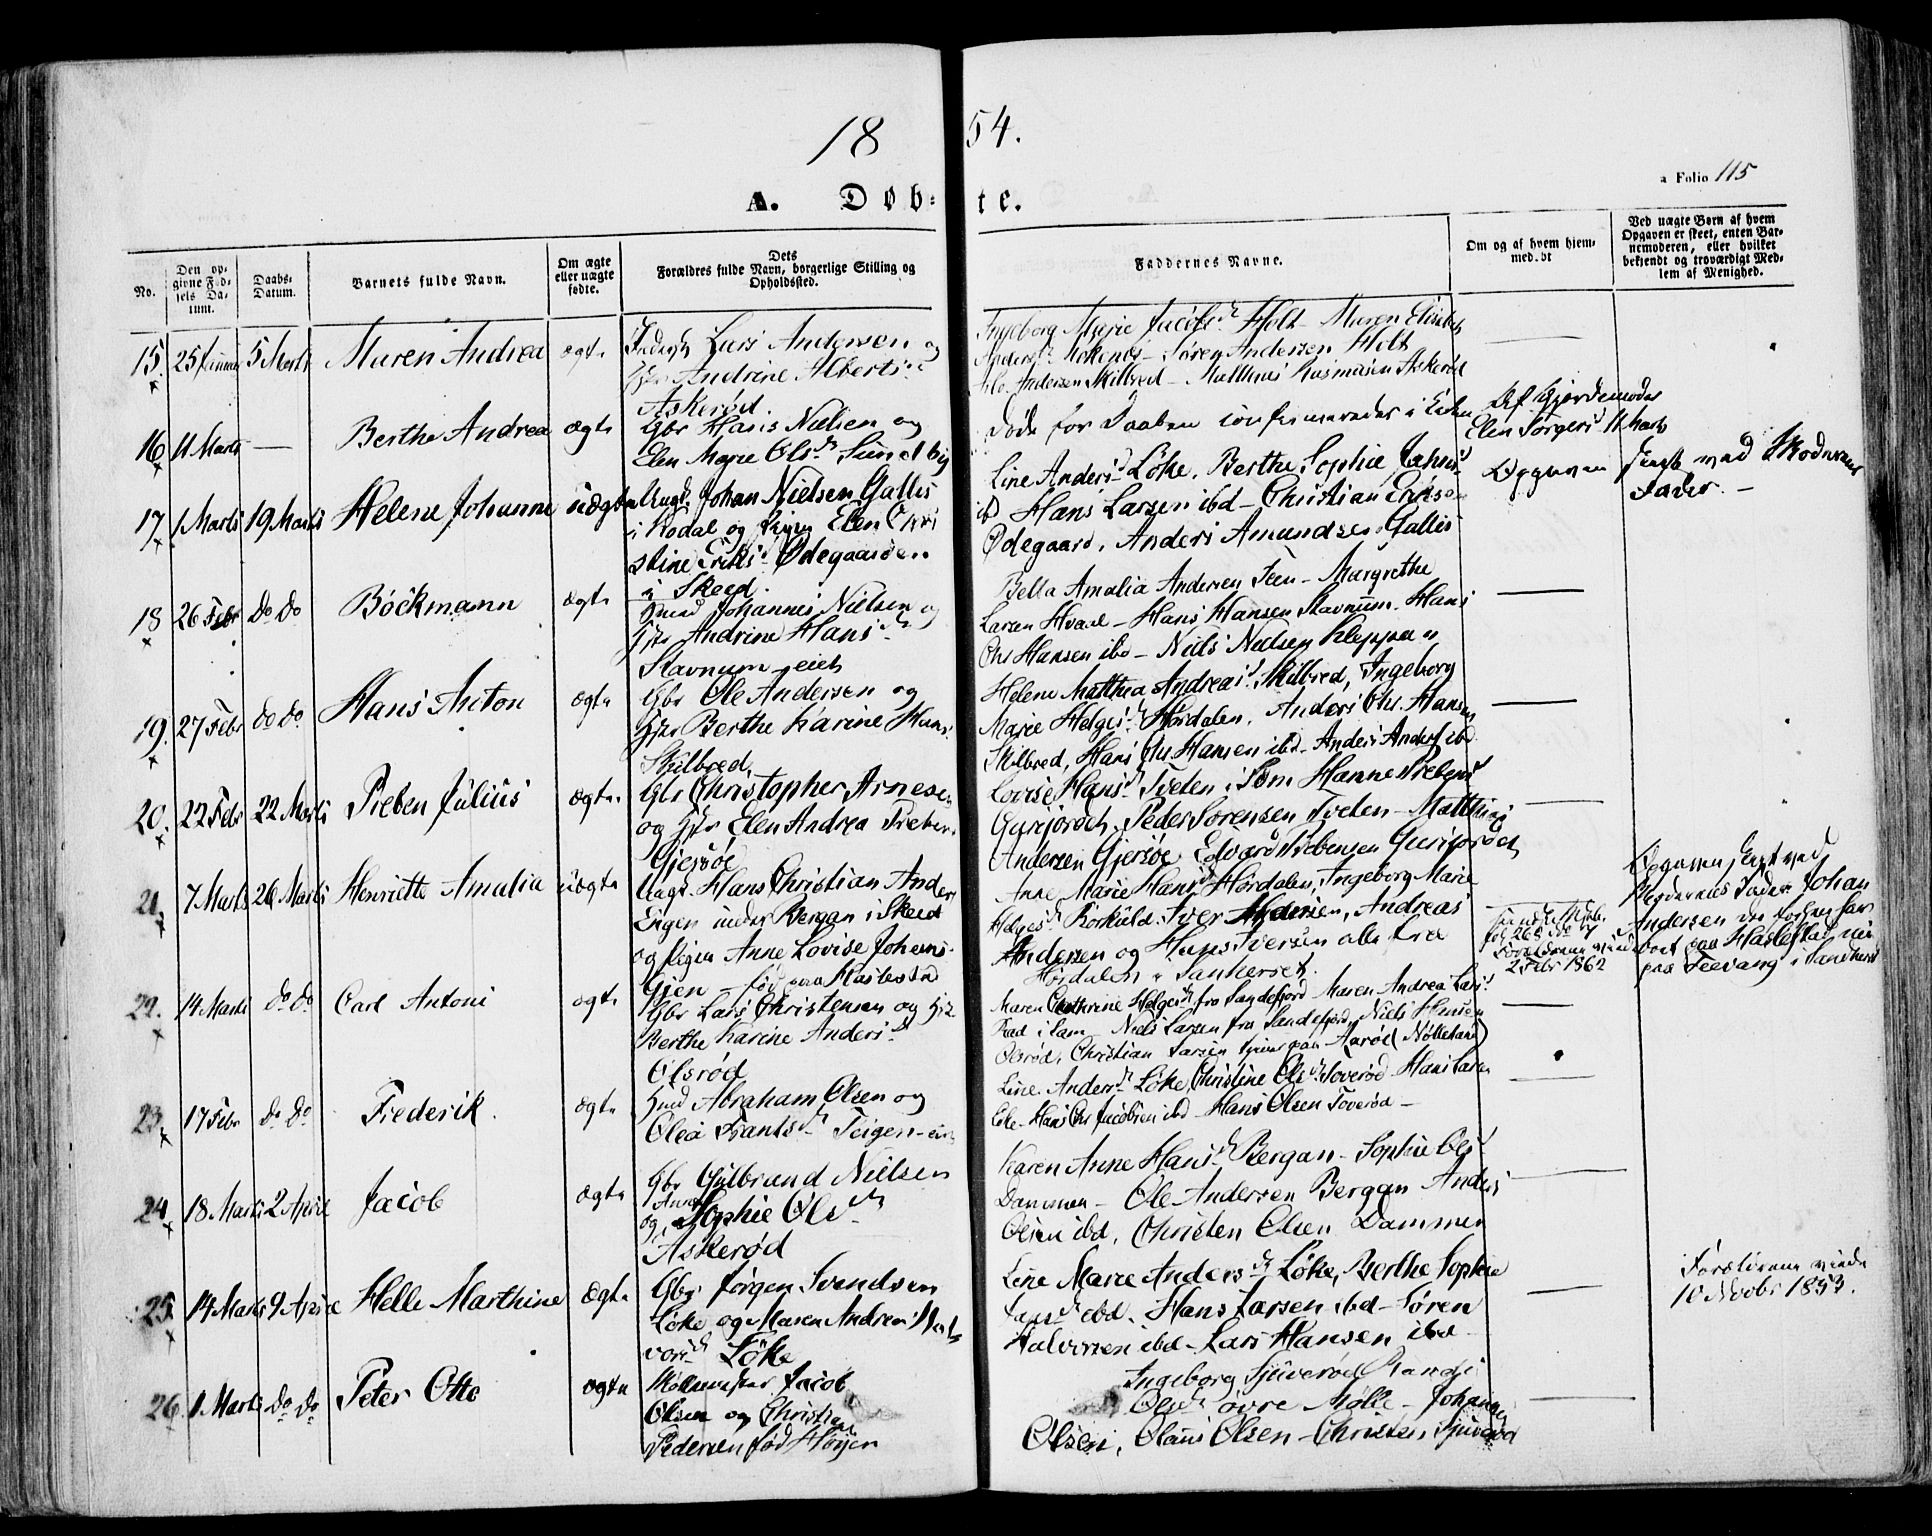 1854.
a Folio 115
A. Døbte.
No.
Den opgivne Fødsels Datum.
Daabs-Datum.
Barnets fulde Navn.
Om ægte eller uægte fødte.
Dets Forældres fulde Navn, borgerlige Stilling og Opholdssted.
Faddernes Navne.
Om og af hvem hjemmedøbt
Ved uægte Børn af hvem Opgaven er skeet, enten Barnemoderen, eller hvilket bekjendt og troværdigt Medlem af Menighed.
15. 25 Januar 5 Marts Maren Andrea ægte
Lars Andersen og
Andrine Alberts
Askerød.
Ingeborg Marie Jacobsd Holt - Maren Elisabeth
Søren Andersen Holt
Andersen Skilbred - Matthias Rasmussen Askerød
16 11 Marts — Berthe Andrea ægte
Gbr Hans Nielsen og
Elen Marie Olsd Sundby
Døde for Daaben
Af Gjordemoder
Elen Torgers 11 Marts
17 1 Marts 19 Marts Helene Johanne uægte
Ungk. Johan Nielsen Gallis
i Kodal og Pigen Elen Chri
stine Eriks Ødegaarden
i Skeed.
Line Andersd Løke. Berthe Sophie Jahns
ibd Hans Larsen ibd - Christian Eriksen
Ødegaard. Anders Amundsen Gallis
Opgaven skeet ved Moderens
Fader. -
18 26 Febr do do Böckmann ægte
Hmd Johannes Nielsen og
Hjtr Andrine Hansd
Stavnum-eiet
Bella Amalia Andersen Feen - Margrethe
Larsen Hvaal - Hans Hansen Stavnum. Hans
Chr Hansen ibd - Niels Nielsen Kleppa
19. 27 Febr do do Hans Anton ægte
Gbr Ole Andersen og
Hjtr Berthe Karine Hans
Skilbred,
Helene Matthea Andreasd Skilbred, Ingeborg
Marie Helgesd Hørdalen. Anders Chr. Hansen
Skilbred, Hans Chr Hansen ibd - Anders Anders ibd
20. 22 Febr 22 Marts Preben Julius ægte.
Gbr Christopher Arnesen
og Hjtr Elen Andrea Preben
Gjersøe
Lovise Hansd Tveten i Sem Hanne Prebens
Gurijordet. Peder Sørensen Tveten - Matthias
Andersen Gjersøe, Edvard Prebensen Gurijordet
21. 7 Marts 26 Marts Henriette Amalia uægte
Ungk. Hans Christian Anders
Eigen under Bergan i Skeed
og Pigen Anne Lovise Johans
Gjen - fød paa Haslestad
Anne Marie Hansd Hørdalen, Ingeborg Marie
Helgesd Rørkuld. Iver Andersen, Andreas
Andersen og Hans Iversen alle fra
Hørdalen i Sanherred.
Forældrene viede
2 Febr 1862
Opgaven skeet ved
Moderens Fader Johan
Andersen
boet paa Haslestad nu
paa Feevang i Sandherd
22. 14 Marts do do Carl Antoni ægte
Gbr Lars Christensen og Hjtr
Berthe Karine Andersd
Ølsrød
Maren Cathrine Helgesd fra Sandefjord Maren Andrea Lars
Rød i Sem - Niels Larsen fra Sandefjord, Niels Hansen
Ølsrød, Christian Larsen tjener paa Aarød (Nøtterland)
23. 17 Febr do do Frederik. ægte
Hmd Abraham Olsen og
Olea Frantsd Teigen-eiet
Line Andersd Løke, Christine Olsd Soverød - Hans Larsen
Eke - Hans Chr Jacobsen ibd - Hans Olsen Toverød -
24. 18 Marts 2 April Jacob ægte
Gbr Gulbrand Nielsen
og Anne Sophie Olsd
Askerød
Karen Anne Hansd Bergan - Sophie Ols
Dammen - Ole Andersen Bergan Anders
Olsen ibd, Christen Olsen Dammen
25. 14 Marts 9 April Helle Marthine ægte
Gbr Jørgen Svendsen
Løke og Maren Andrea Hal
vorsd Løke
Line Marie Andersd Løke, Berthe Sophie
ibd. Hans Larsen ibd - Søren
Halvorsen ibd - Lars Hansen ibd -
Forældrene viede
10 Novbr 1853.
26. 1 Marts do do Peter Otto ægte
Møllemester Jacob
Olsen og Christiane
Pedersen fød Høyer
Ingeborg Sjuverød Randi
Olsd øvre Mølle - Johannes
Olsen, Olaus Olsen - Christen Sjuverød